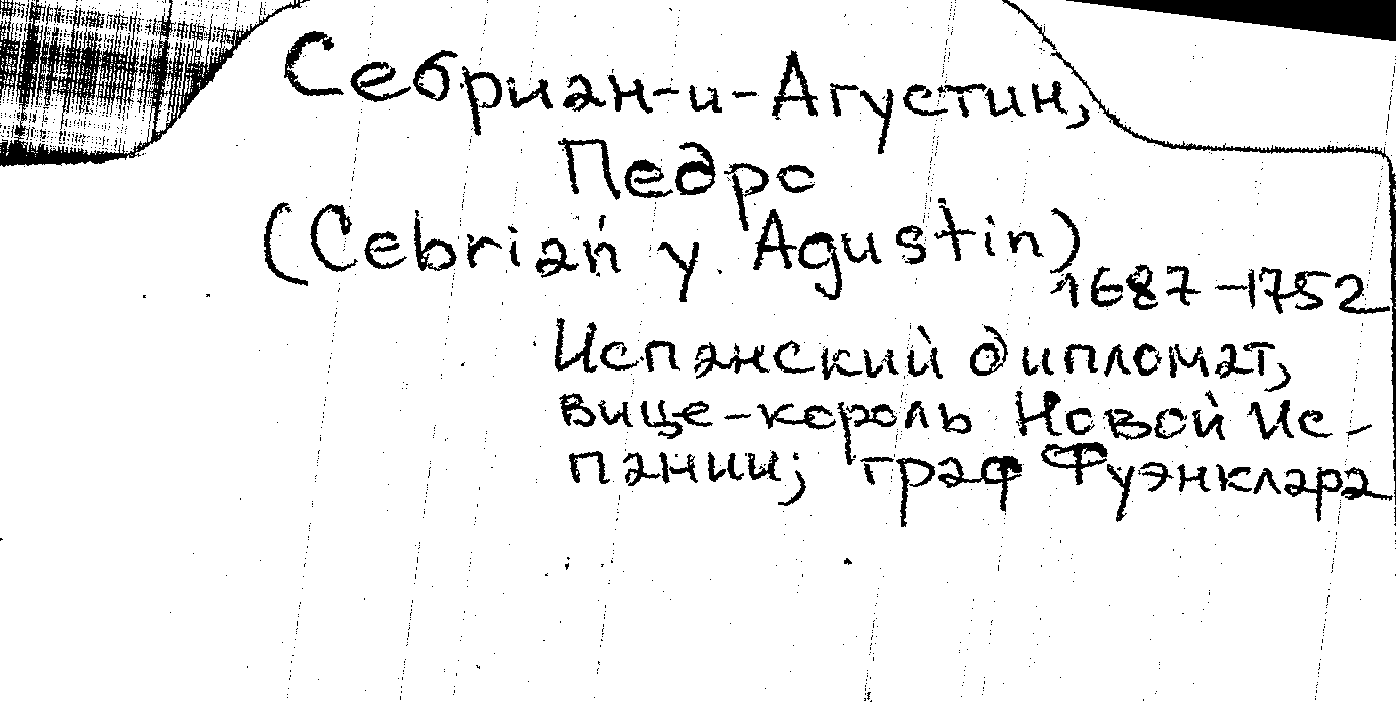 Себриан-и-Агустин,
Педро
(Cebrián y Agustin)
1687-1752
Испанский дипломат,
вице-король Новой Ис-
пании; граф Фуэнклара